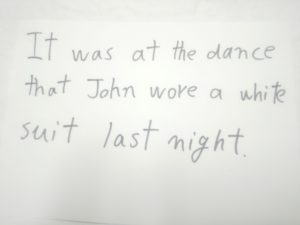 It was at the dance
that John wore a white
suit last night.